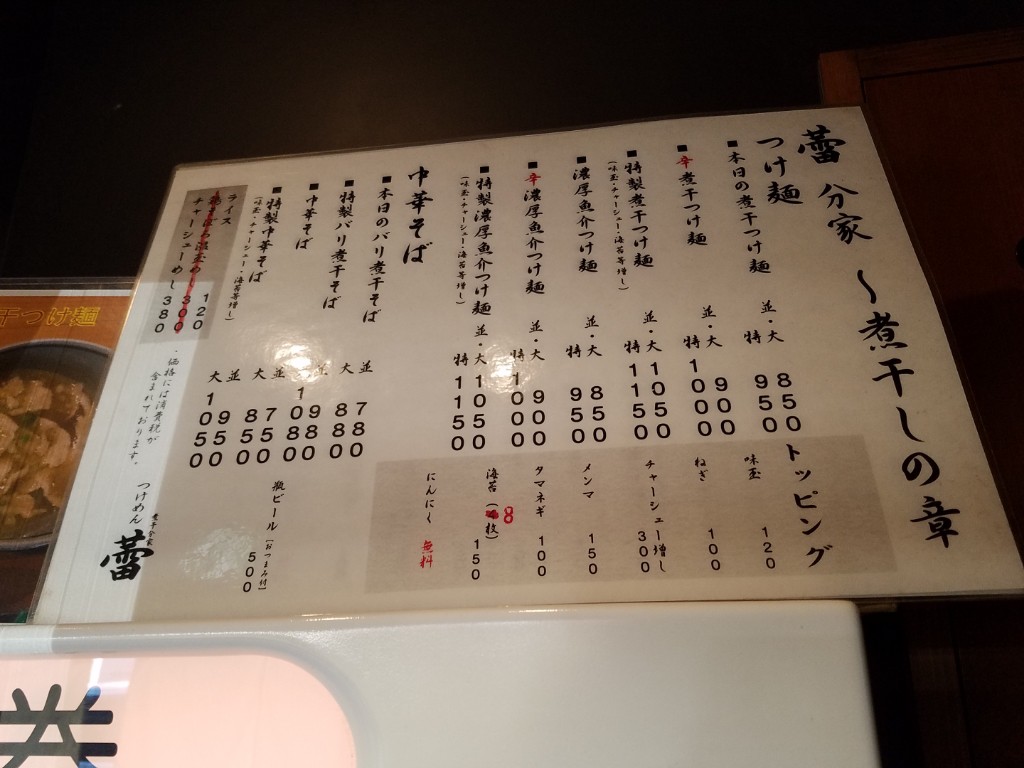 蕾 分家 〜煮干しの章
つけ麺
■本日の煮干つけ麺 並・大 850
特 950
■辛煮干つけ麺 並・大 900
特 1000
■特製煮干つけ麺 並・大 1050
(味玉・チャーシュー・海苔等増し) 特 1150
■濃厚魚介つけ麺 並・大 850
特 950
■辛濃厚魚介つけ麺 並・大 900
特 1000
■特製濃厚魚介つけ麺 並・大 1050
(味玉・チャーシュー・海苔等増し) 特 1150
中華そば
■本日のバリ煮干そば 並 780
大 880
■特製バリ煮干そば 並 980
大 1080
■中華そば 並 750
大 850
■特製中華そば 並 950
(味玉・チャーシュー・海苔等増し) 大 1050
ライス 120
300
チャーシューめし 380
トッピング
味玉 120
ねぎ 100
チャーシュー増し 300
メンマ 150
タマネギ 100
海苔(8枚) 150
にんにく 無料
瓶ビール(おつまみ付) 500
・価格には消費税が
含まれております。
つけめん
煮干分家
蕾
干つけ麺
券